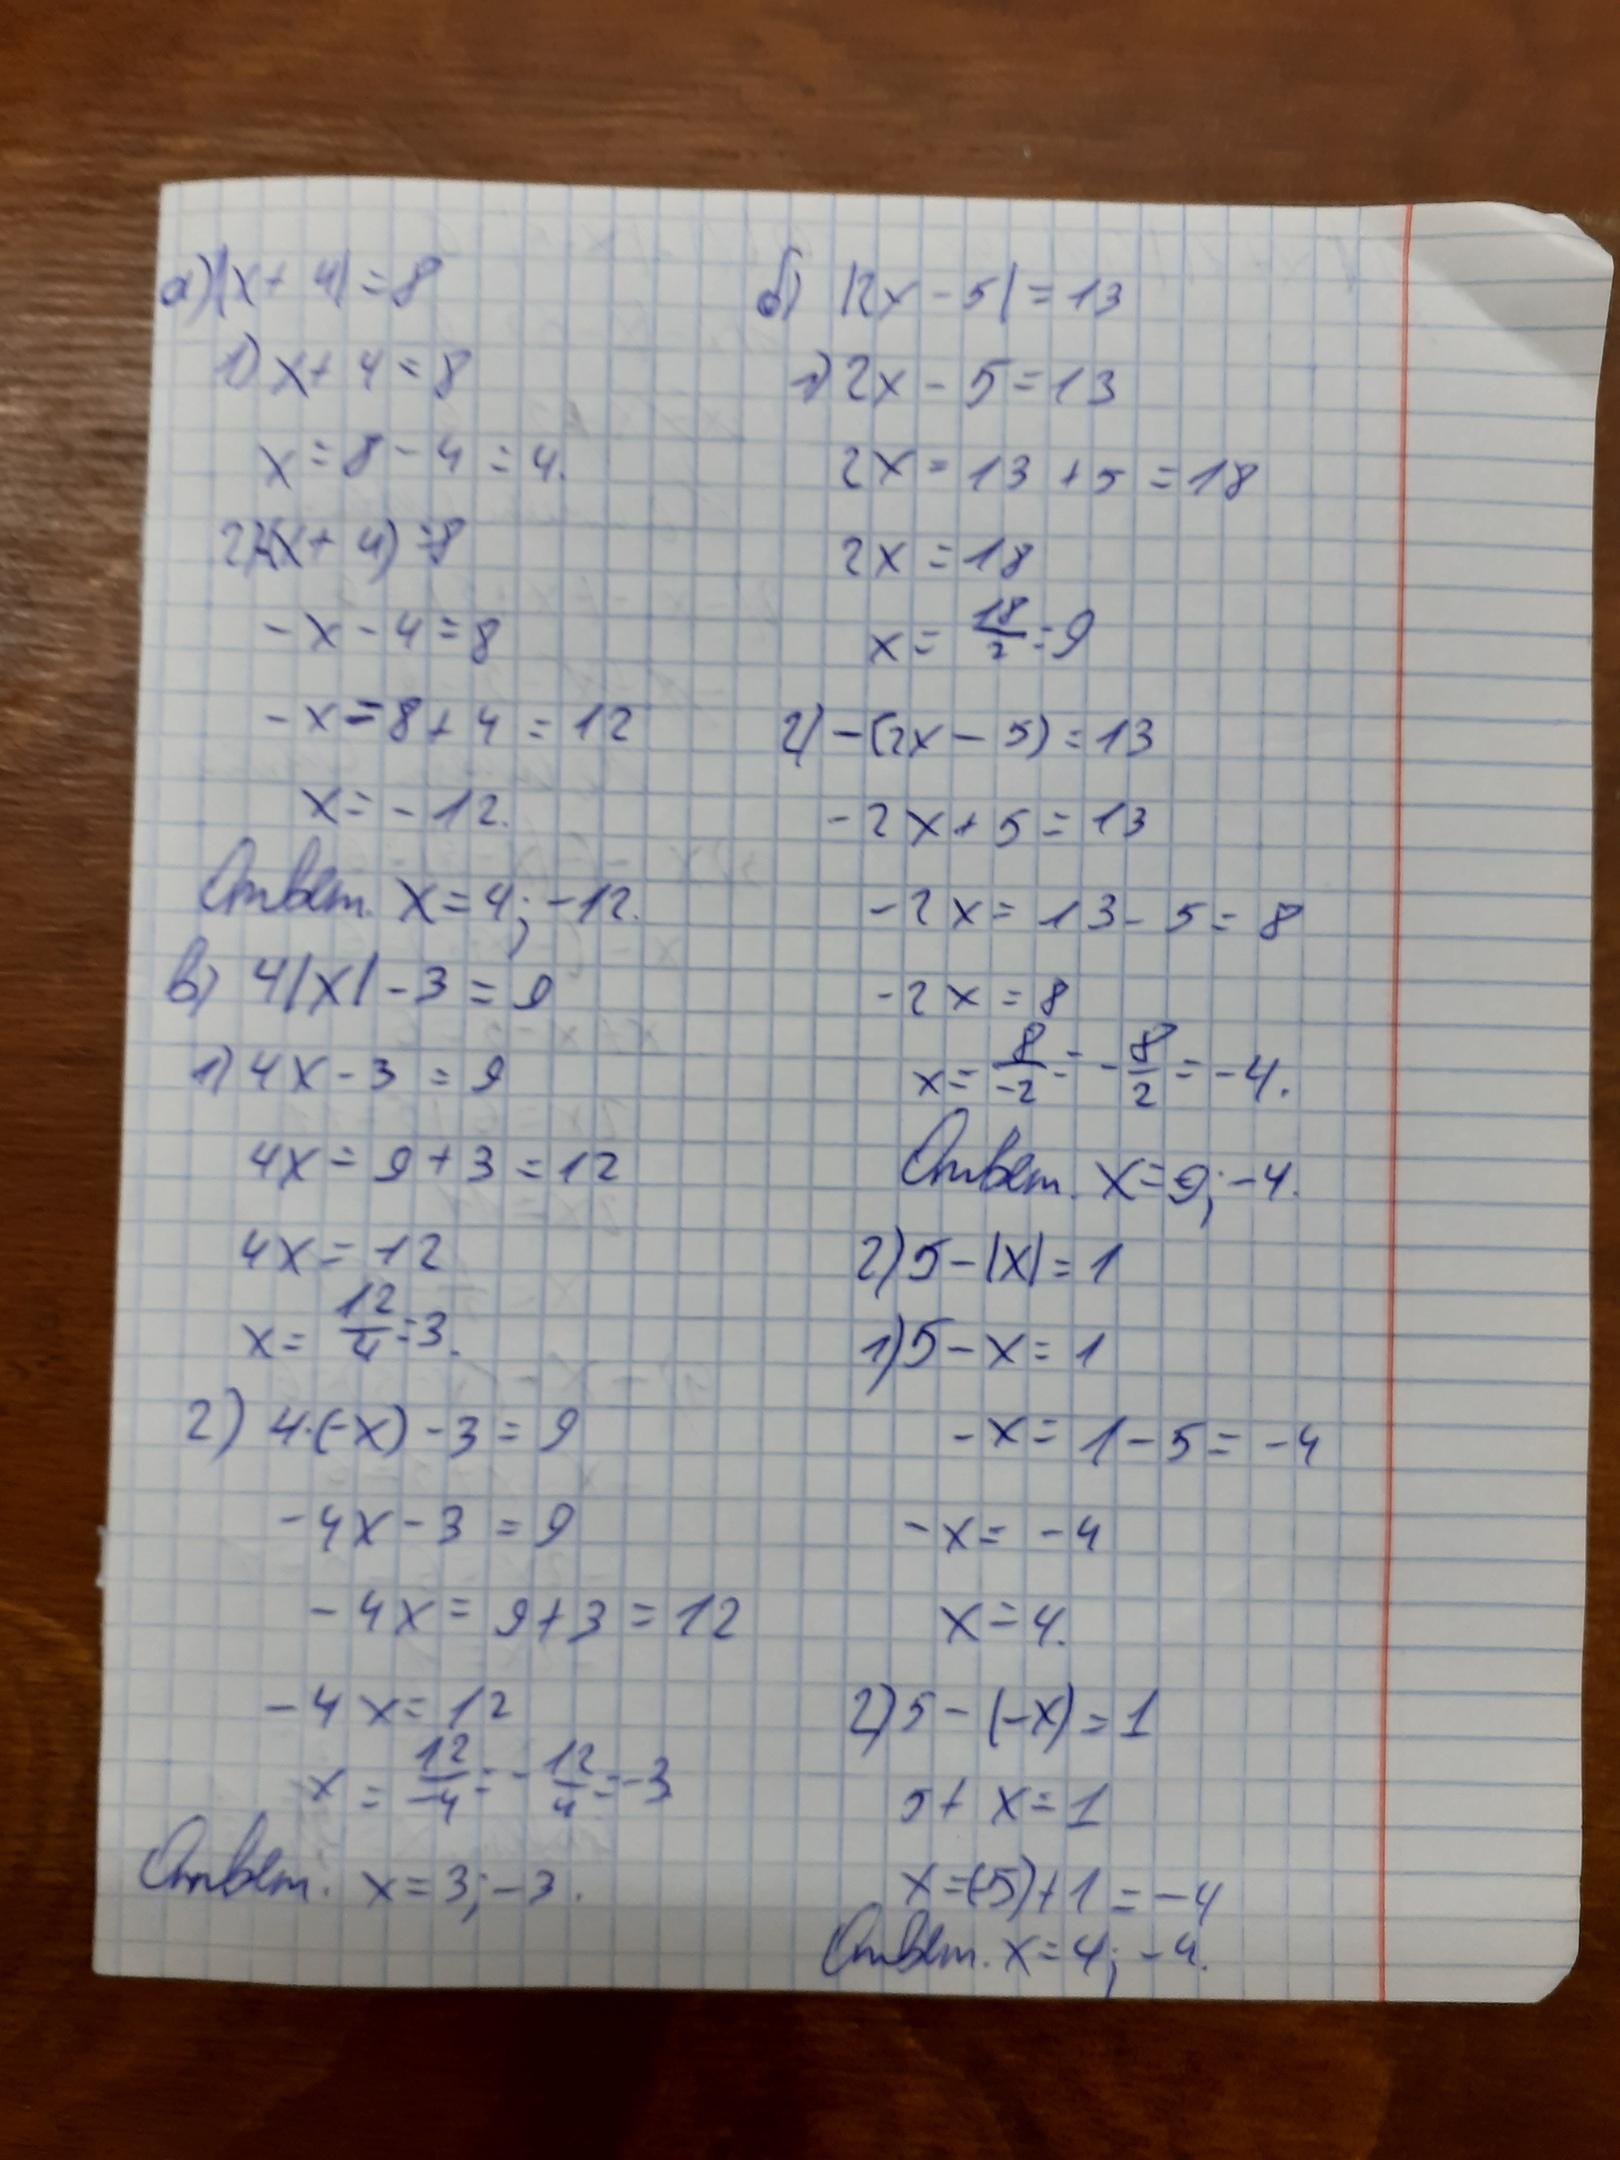 а) |x + 4| = 8
1) x + 4 = 8
x = 8 - 4 = 4.
2) -(x + 4) = 8
-x - 4 = 8
-x = 8 + 4 = 12
x = -12.
Ответ. x = 4; -12.
в) 4|x| - 3 = 9
1) 4x - 3 = 9
4x = 9 + 3 = 12
4x = 12
x = 12/4 = 3.
2) 4·(-x) - 3 = 9
-4x - 3 = 9
-4x = 9 + 3 = 12
-4x = 12
x = 12/-4 = -12/4 = -3
Ответ. x = 3; -3.
б) |2x - 5| = 13
1) 2x - 5 = 13
2x = 13 + 5 = 18
2x = 18
x = 18/2 = 9
2) -(2x - 5) = 13
-2x + 5 = 13
-2x = 13 - 5 = 8
-2x = 8
x = 8/-2 = -8/2 = -4.
Ответ. x = 9; -4.
г) 5 - |x| = 1
1) 5 - x = 1
-x = 1 - 5 = -4
-x = -4
x = 4.
2) 5 - (-x) = 1
5 + x = 1
x = (-5) + 1 = -4
Ответ. x = 4; -4.